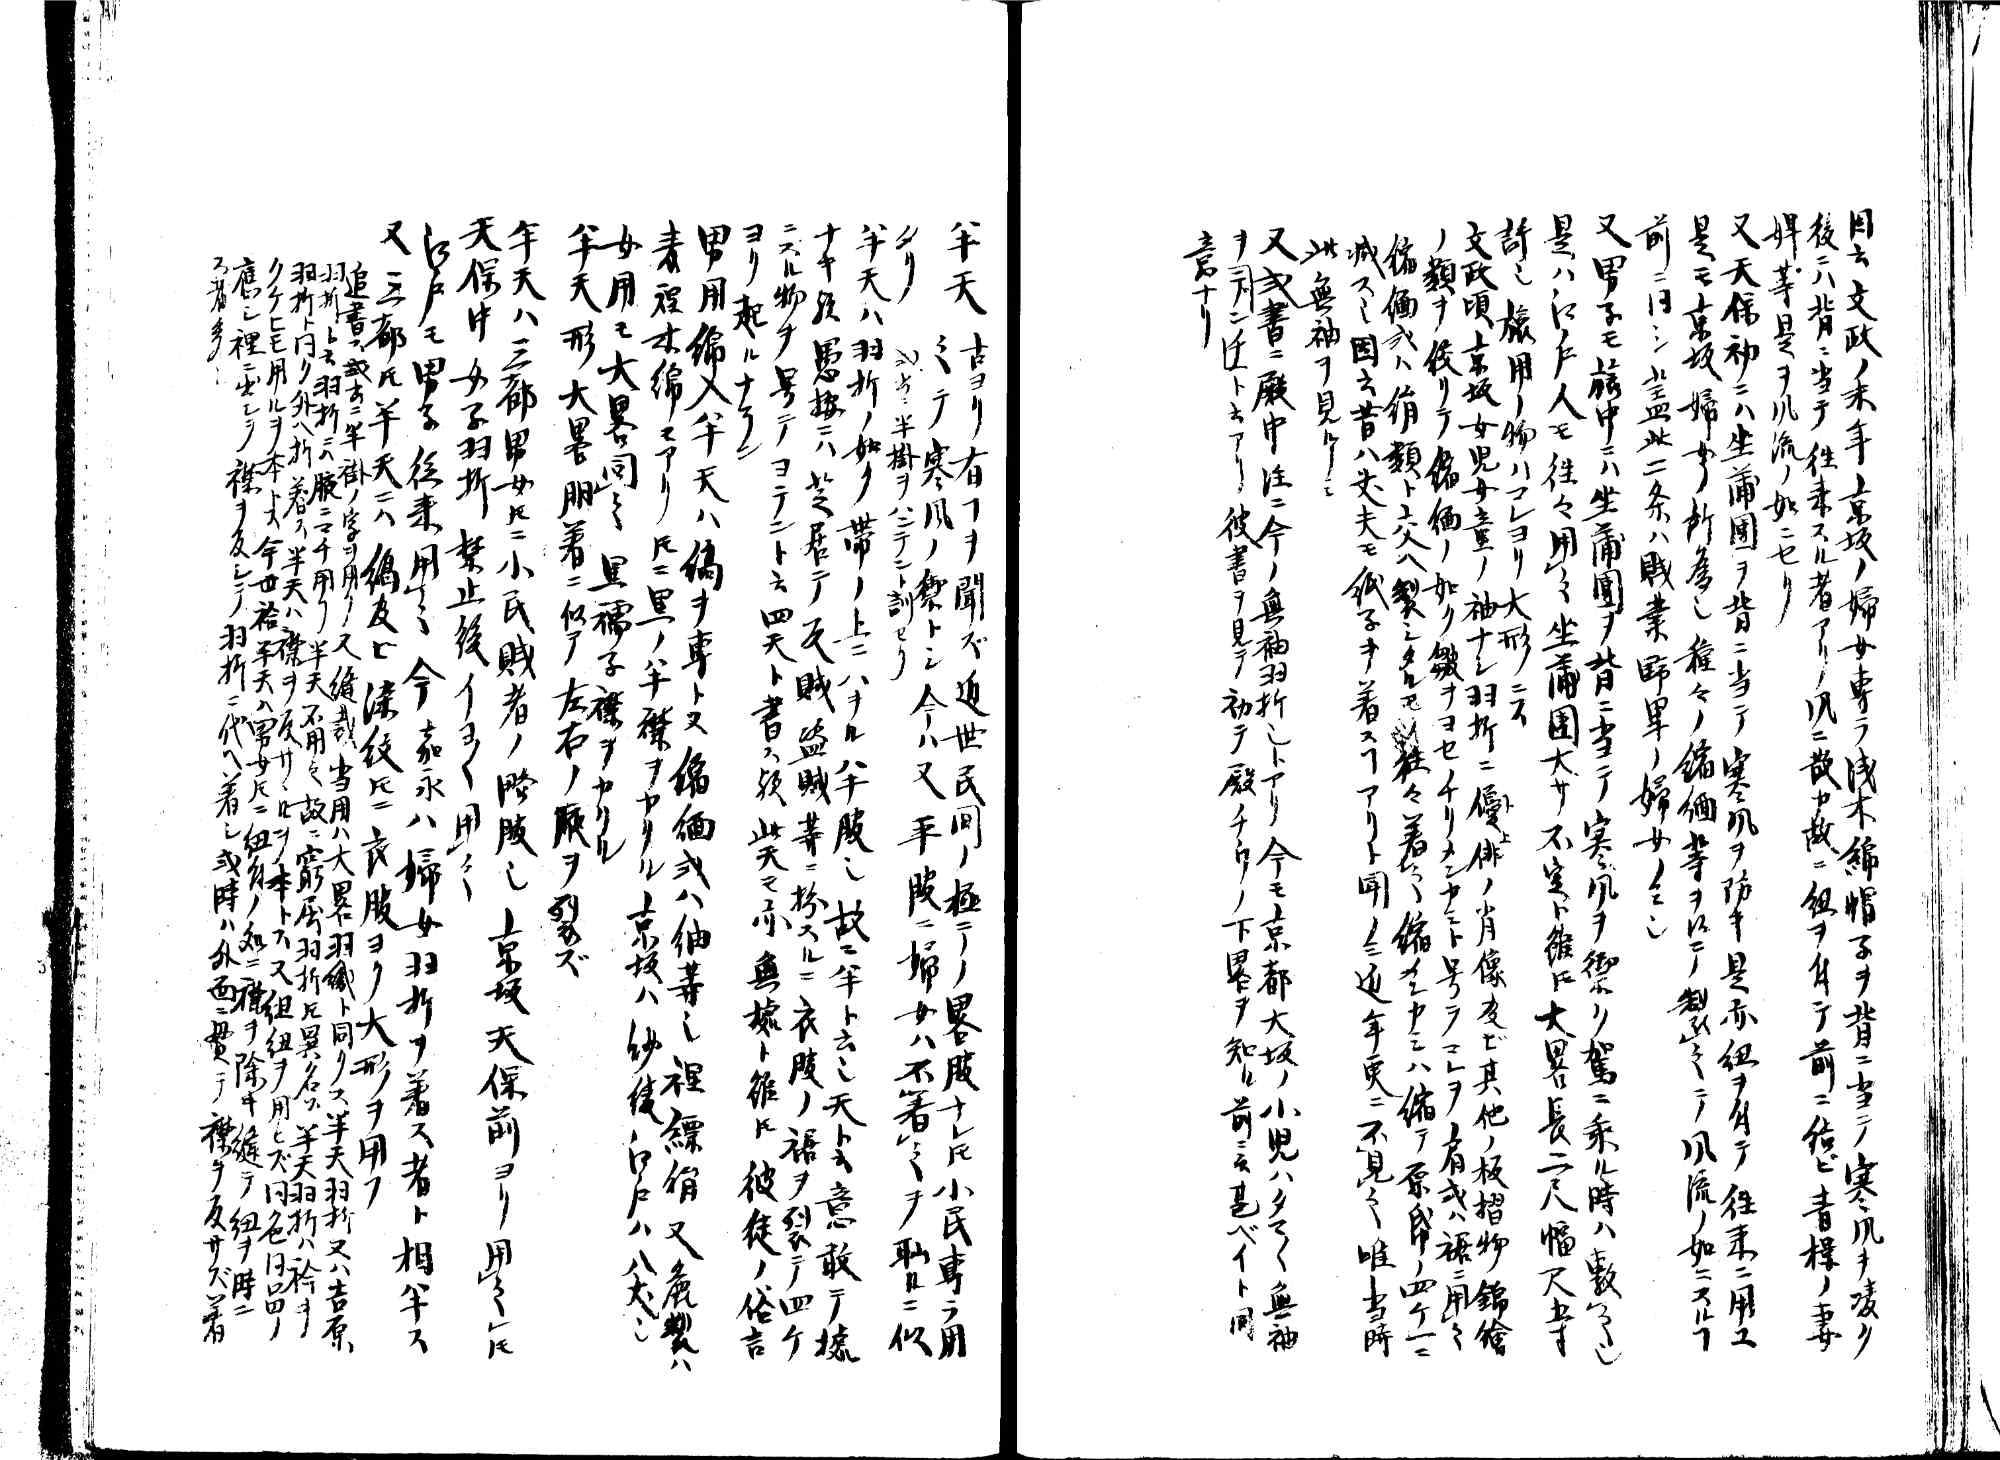 因云文政ノ末年京坂ノ婦女専ラ浅木綿帽子ヲ背ニ当テ寒風ヲ凌ク
後ニハ背ニ当テ往来スル者アリノ風ニ散ヤ故ニ紐ヲ付テ前ニ結ビ青楼ノ妻
婢等是ヲ風流ノ如ニセリ
又天保初ニハ坐蒲團ヲ背ニ当テ寒風ヲ防キ是亦紐ヲ付テ往来ニ用ユ
是モ京坂婦女ノ所為也種々ノ縮緬等ヲ以テ製之テ風流ノ如ニスルヿ
前ニ同シ盖此二条ハ賤業野卑ノ婦女ノミ也
又男子モ旅中ニハ坐蒲團ヲ背ニ当テ寒風ヲ禦リ駕ニ乘ル時ハ敷之也
是ハ江戸人モ往々用之坐蒲團大サ不定ト雖𪜈大畧長二尺幅尺五寸
許也旅用ノ物ハコレヨリ大形ニス
文政頃京坂女児女童ノ袖ナシ羽折ニ優俳ノ肖像及ビ其他ノ板摺物錦繪
ノ類ヲ俵リテ縮緬ノ如ク皺ヲヨセチリメンカミト号テコレヲ肩或ハ裾ニ用之
縮緬或ハ絹類ト交ヘ製シタルモ往々着之縮メンカミハ縮テ原帋ノ四ケ一ニ
減ス也因云昔ハ丈夫モ紙子ヲ着スヿアリト聞ノミ近年更ニ不見之唯当時
此無袖ヲ見ルノミ
又或書ニ殿中注ニ今ノ無袖羽折也トアリ今モ京都大坂ノ小児ハタマタマ無袖
ヲデンチト云アリ彼書ヲ見テ初テ殿チウノ下畧ヲ知ル前ニ云甚ベイト同
意ナリ
半天 古ヨリ有ヿヲ聞ズ近世民間ノ極テノ畧服ナレ𪜈小民専ラ用
之テ寒風ノ禦トシ今ハ又平服ニ婦女ハ不着之ヲ耻ルニ似
タリ 或書ニ半掛ヲハンテント訓セリ
半天ハ羽折ノ如ク帯ノ上ニハヲル半服也故ニ半ト云也天ト云意敢テ據
ナキ歟愚按ニハ芝居ニテ反賊盗賊等ニ扮スルニ衣服ノ裾ヲ裂テ四ケ
ニスル物ヲ号テヨテント云四天ト書ス歟此天モ亦無據ト雖𪜈彼徒ノ俗言
ヨリ起ルナラン
男用綿入半天ハ縞ヲ専ト又縮緬或ハ紬等也裡縹絹又麁製ハ
表裡木綿モアリ𪜈ニ黒ノ半襟ヲカクル京坂ハ紗綾江戸ハ八丈也
女用モ大畧同之黒襦子襟ヲカクル
半天形大畧胴着ニ似テ左右ノ腋ヲ裂ズ
半天ハ三都男女𪜈ニ小民賤者ノ略服也京坂天保前ヨリ用之𪜈
天保中女子羽折禁止後イヨイヨ用之
江戸モ男子従来用之今嘉永ハ婦女羽折ヲ着ス者ト相半ス
又三都𪜈半天ニハ縞及ヒ染紋𪜈ニ衣服ヨリ大形ヲ用フ
追書ス或云ニ半掛ノ字ヲ用ノス縫裁当用ハ大畧羽織ト同クス半天羽折又ハ吉原
羽折トモ云羽折ニハ腋ニマチ用リ半天不用之故ニ窮屈羽折𪜈異名ス半天羽折ハ衿ヲ
羽折ト同ク外ヘ折着ス半天ハ襟ヲ反サヾルヲ本トス又組紐ヲ用ヒズ同色同品ノ
クケヒモ用ルヲ本トス今世袷半天ハ男女𪜈ニ紐付ノ処ニ襠ヲ除キ縫テ紐ヲ時ニ
應シ裡ニ出シテ襟ヲ反シテ羽折ニ代ヘ着シ或時ハ外面ニ貫テ襟ヲ反サズ着
ス者多シ